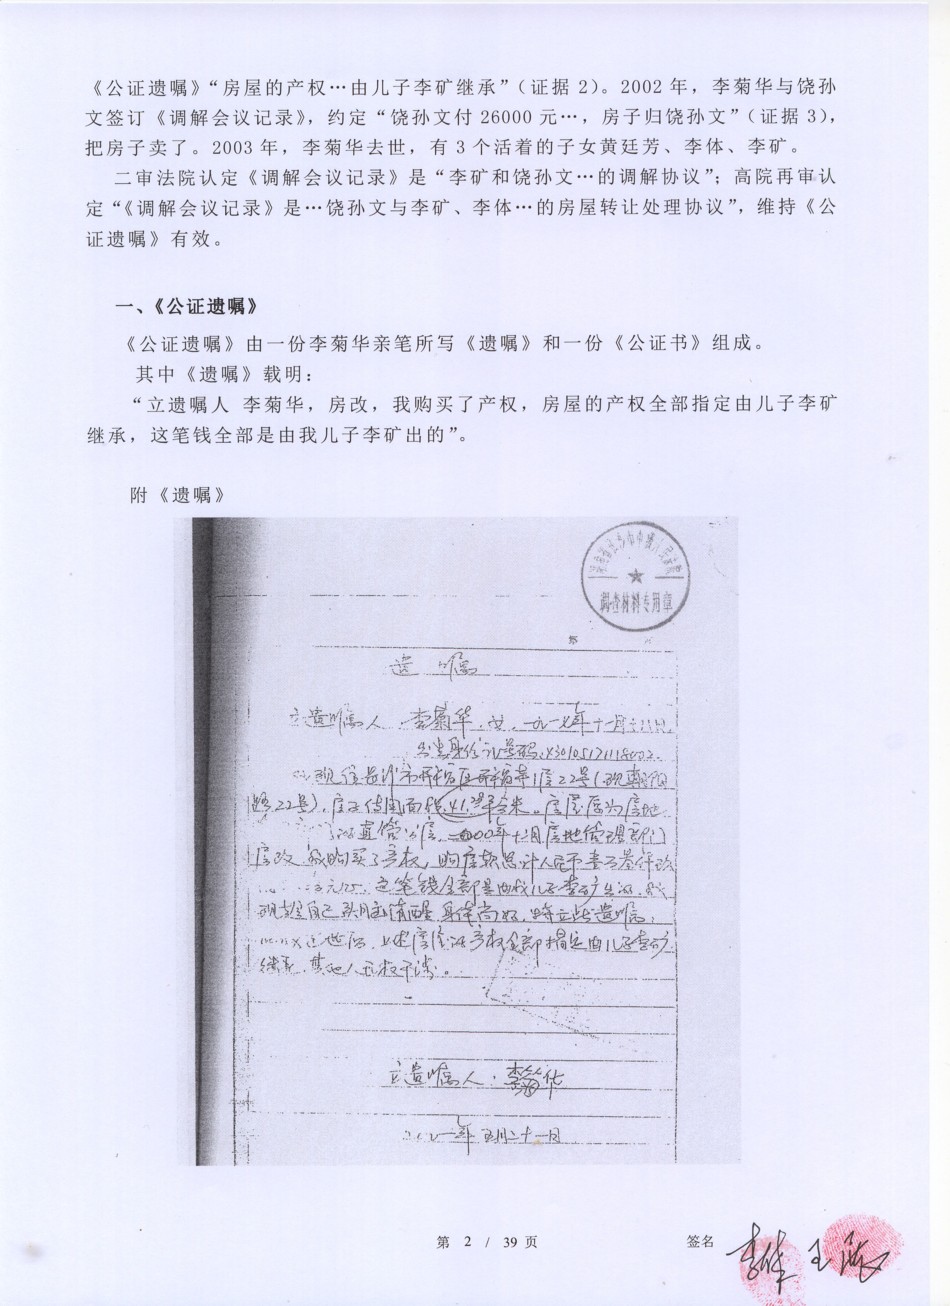 《公证遗嘱》“房屋的产权…由儿子李矿继承”（证据 2）。2002 年，李菊华与饶孙
文签订《调解会议记录》，约定“饶孙文付 26000 元…，房子归饶孙文”（证据 3），
把房子卖了。2003 年，李菊华去世，有 3 个活着的子女黄廷芳、李体、李矿。
二审法院认定《调解会议记录》是“李矿和饶孙文…的调解协议”；高院再审认
定“《调解会议记录》是…饶孙文与李矿、李体…的房屋转让处理协议”，维持《公
证遗嘱》有效。
一、《公证遗嘱》
《公证遗嘱》由一份李菊华亲笔所写《遗嘱》和一份《公证书》组成。
其中《遗嘱》载明：
“立遗嘱人 李菊华，房改，我购买了产权，房屋的产权全部指定由儿子李矿
继承，这笔钱全部是由我儿子李矿出的”。
附《遗嘱》
调查材料专用章
第
遗嘱
立遗嘱人 李菊华，女，一九一七年十一月
公民身份证号码
现住长沙市开福区开福寺1
路22号），房子使用面积41.平方米。房屋原为房地
直管公房，二000年十二月房地管理部门
房改，我购买了产权，购房款总计人民币
这笔钱全部是由我儿子李矿出的，我
现趁自己头脑清醒身体尚好，特立此遗嘱：
去世后，上述房屋的产权全部指定由儿子李矿
继承，其他人无权干涉。
立遗嘱人：李菊华
二00一年五月二十一日
第 2 / 39 页
签名 李体